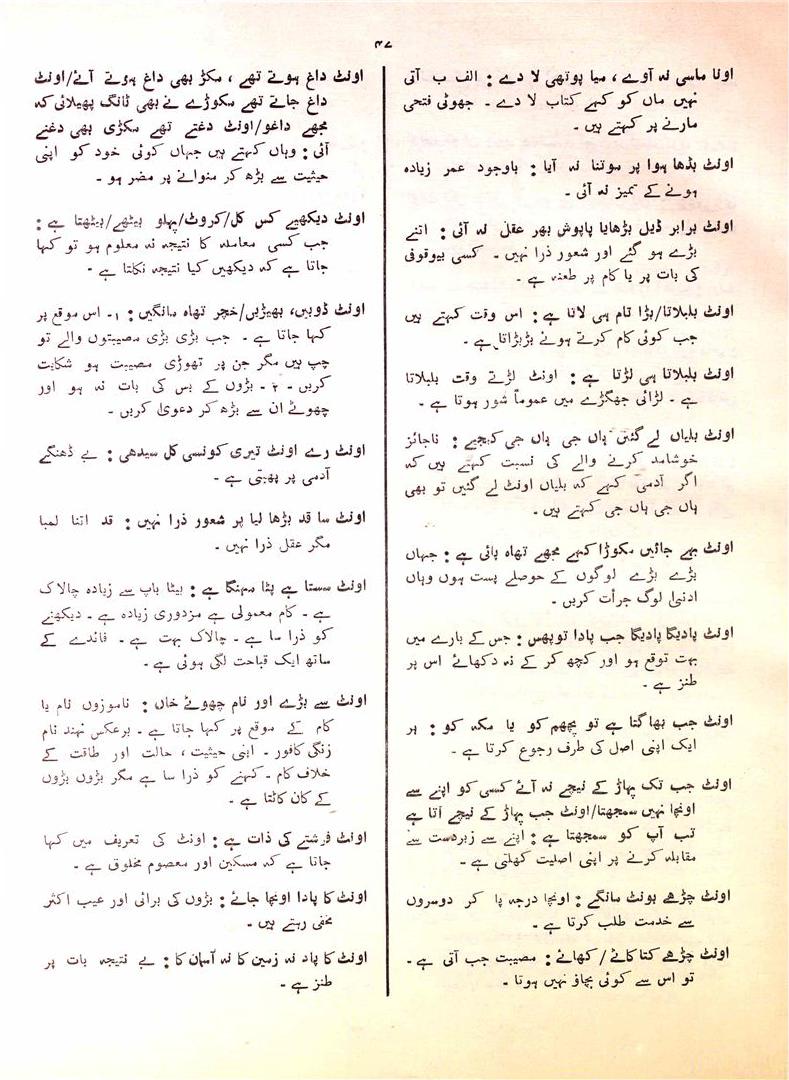 ۳۷
اونا ماسی نہ آوے ، میا پوتھی لا دے : الف ب آتی
نہیں ماں کو کہے کتاب لا دے ۔ جھوٹی فتحی
مارنے پر کہتے ہیں ۔
اونٹ بڈھا ہوا پر موتنا نہ آیا : باوجود عمر زیادہ
ہونے کے تمیز نہ آئی ۔
اونٹ برابر ڈیل بڑھایا پاپوش بھر عقل نہ آئی : اتنے
بڑے ہو گئے اور شعور ذرا نہیں ۔ کسی بیوقوفی
کی بات پر یا کام پر طعنہ ہے ۔
اونٹ بلبلاتا/بڑا تام ہی لاتا ہے : اس وقت کہتے ہیں
جب کوئی کام کرتے ہوئے بڑبڑاتا ہے ۔
اونٹ بلبلاتا ہی لڑتا ہے : اونٹ لڑتے وقت بلبلاتا
ہے ۔ لڑائی جھگڑے میں عموماً شور ہوتا ہے ۔
اونٹ بلیاں لے گئیں ہاں جی ہاں جی کیجیے : ناجائز
خوشامد کرنے والے کی نسبت کہتے ہیں کہ
اگر آدمی کہے کہ بلیاں اونٹ لے گئیں تو بھی
ہاں جی ہاں جی کہتے ہیں ۔
اونٹ بہے جائیں مکوڑا کہے مجھے تھاہ پائی ہے : جہاں
بڑے بڑے لوگوں کے حوصلے پست ہوں وہاں
ادنیٰ لوگ جرأت کریں ۔
اونٹ پادیگا پادیگا جب پادا تو پھس : جس کے بارے میں
بہت توقع ہو اور کچھ کر کے نہ دکھائے اس پر
طنز ہے ۔
اونٹ جب بھاگتا ہے تو پچھم کو یا مکہ کو : ہر
ایک اپنی اصل کی طرف رجوع کرتا ہے ۔
اونٹ جب تک پہاڑ کے نیچے نہ آئے کسی کو اپنے سے
اونچا نہیں سمجھتا/اونٹ جب پہاڑ کے نیچے آتا ہے
تب آپ کو سمجھتا ہے : اپنے سے زبردست سے
مقابلہ کرنے پر اپنی اصلیت کھلتی ہے ۔
اونٹ چڑھے بونٹ مانگے : اونچا درجہ پا کر دوسروں
سے خدمت طلب کرتا ہے ۔
اونٹ چڑھے کتا کاٹے / کھائے : مصیبت جب آتی ہے ۔
تو اس سے کوئی بچاؤ نہیں ہوتا ۔
اونٹ داغ ہوتے تھے ، مکڑ بھی داغ ہوتے آئے/اونٹ
داغ جاتے تھے مکوڑے نے بھی ٹانگ پھیلائی کہ
مجھے داغو/اونٹ دغتے تھے مکڑی بھی دغنے
آئی : وہاں کہتے ہیں جہاں کوئی خود کو اپنی
حیثیت سے بڑھ کر منوانے پر مضر ہو ۔
اونٹ دیکھیے کس کل/کروٹ/پہلو بیٹھے/بیٹھتا ہے :
جب کسی معاملہ کا نتیجہ نہ معلوم ہو تو کہا
جاتا ہے کہ دیکھیں کیا نتیجہ نکلتا ہے ۔
اونٹ ڈوبیں، بھیڑیں/خچر تھاہ مانگیں : ۱۔ اس موقع پر
کہا جاتا ہے ۔ جب بڑی بڑی مصیبتوں والے تو
چپ ہیں مگر جن پر تھوڑی مصیبت ہو شکایت
کریں ۔ ۲ ۔ بڑوں کے بس کی بات نہ ہو اور
چھوٹے ان سے بڑھ کر دعویٰ کریں ۔
اونٹ رے اونٹ تیری کونسی کل سیدھی : بے ڈھنگے
آدمی پر پھبتی ہے ۔
اونٹ سا قد بڑھا لیا پر شعور ذرا نہیں : قد اتنا لمبا
مگر عقل ذرا نہیں ۔
اونٹ سستا ہے پٹا مہنگا ہے : بیٹا باپ سے زیادہ چالاک
ہے ۔ کام معمولی ہے مزدوری زیادہ ہے ۔ دیکھنے
کو ذرا سا ہے ۔ چالاک بہت ہے ۔ فائدے کے
ساتھ ایک قباحت لگی ہوئی ہے ۔
اونٹ سے بڑے اور نام چھوٹے خاں : ناموزوں نام یا
کام کے موقع پر کہا جاتا ہے ۔ برعکس نہند نام
زنگی کافور ۔ اپنی حیثیت ، حالت اور طاقت کے
خلاف کام ۔ کہنے کو ذرا سا ہے مگر بڑوں بڑوں
کے کان کاٹتا ہے ۔
اونٹ فرشتے کی ذات ہے : اونٹ کی تعریف میں کہا
جاتا ہے کہ مسکین اور معصوم مخلوق ہے ۔
اونٹ کا پادا اونچا جائے : بڑوں کی برائی اور عیب اکثر
مخفی رہتے ہیں ۔
اونٹ کا پاد نہ زمین کا نہ آسمان کا : بے نتیجہ بات پر
طنز ہے ۔